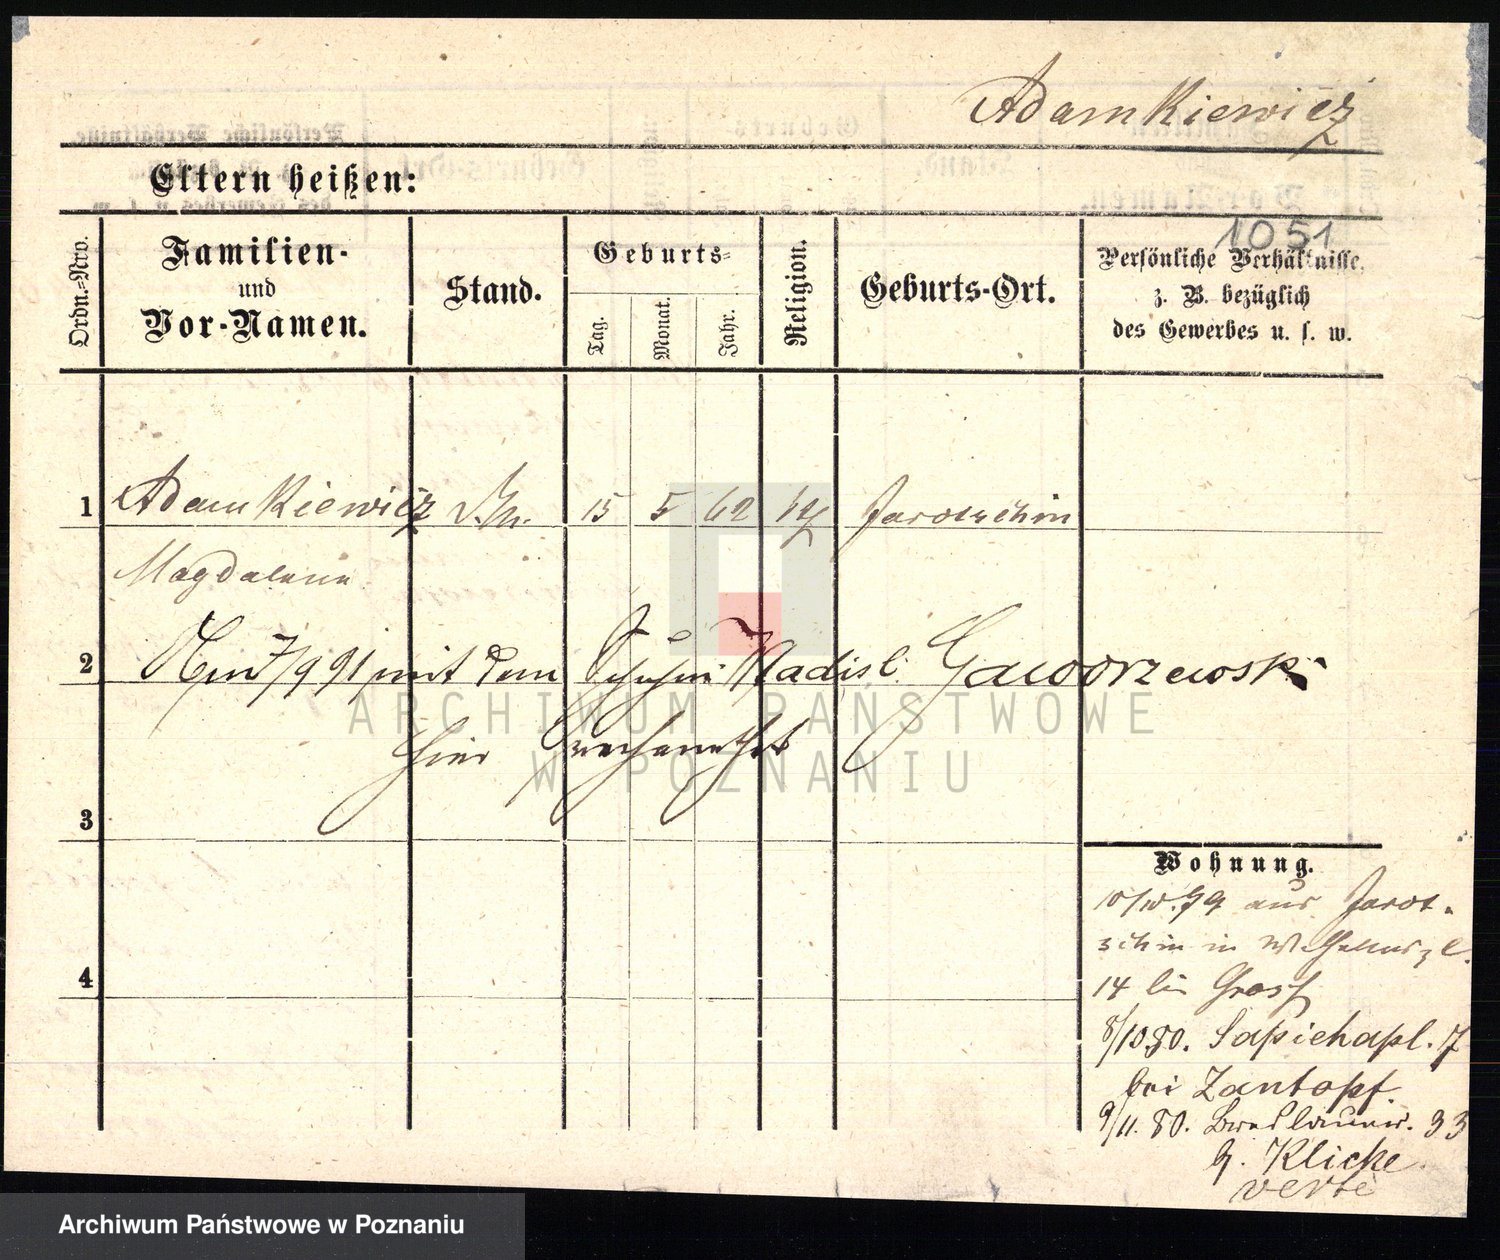 Adamkiewicz
Eltern heißen:
1051
Ordn.-Nro.
Familien-
und
Vor-Namen.
Stand.
Geburts-
Tag.
Monat.
Jahr.
Religion.
Geburts-Ort.
Persönliche Verhältnisse,
z. B. bezüglich
des Gewerbes u. s. w.
1 Adamkiewicz 15 5 62 Jarotschin
Magdalena
2 7/9 91 mit dem Wladisl. Gaworzewski
hier verheirathet
3
4
Wohnung.
10/10.79 aus Jarot-
schin in Wilhelmspl.
14 bei Gross
8/10.80. Sapiehapl. 7
bei Zantopf.
9/11.80. Breslauer. 33
b. Klicke
verte
ARCHIWUM PAŃSTWOWE
W POZNANIU
Archiwum Państwowe w Poznaniu